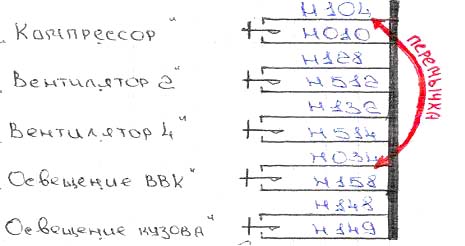 Н104
Компрессор" + Н010
Н128
Вентилятор 2" + Н512
Н132
Вентилятор 4" + Н514
Н034
Освещение ВВК" + Н158
Н148
Освещение кузова" + Н149
ПЕРЕМЫЧКА